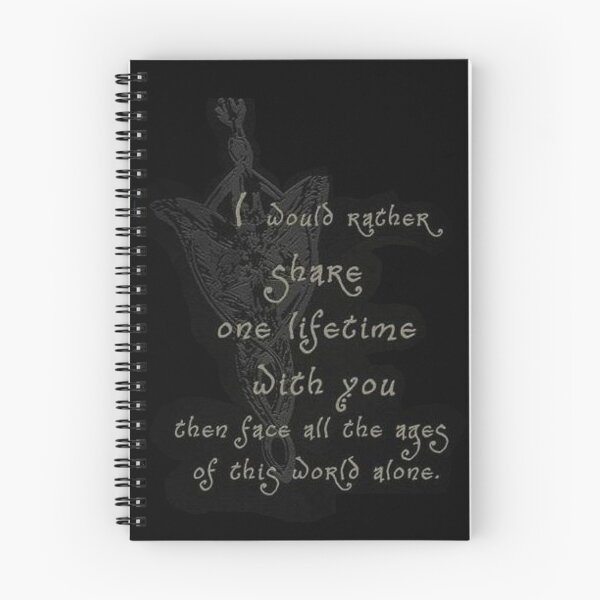 I would rather
share
one lifetime
with you
then face all the ages
of this world alone.